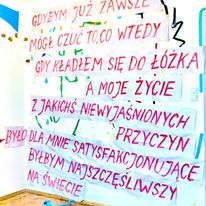 GDYBYM JUŻ ZAWSZE
MÓGŁ CZUĆ TO, CO WTEDY
GDY KŁADŁEM SIĘ DO ŁÓŻKA
A MOJE ŻYCIE
Z JAKICHŚ NIEWYJAŚNIONYCH
PRZYCZYN
BYŁO DLA MNIE SATYSFAKCJONUJĄCE
BYŁBYM NAJSZCZĘŚLIWSZY
NA ŚWIECIE